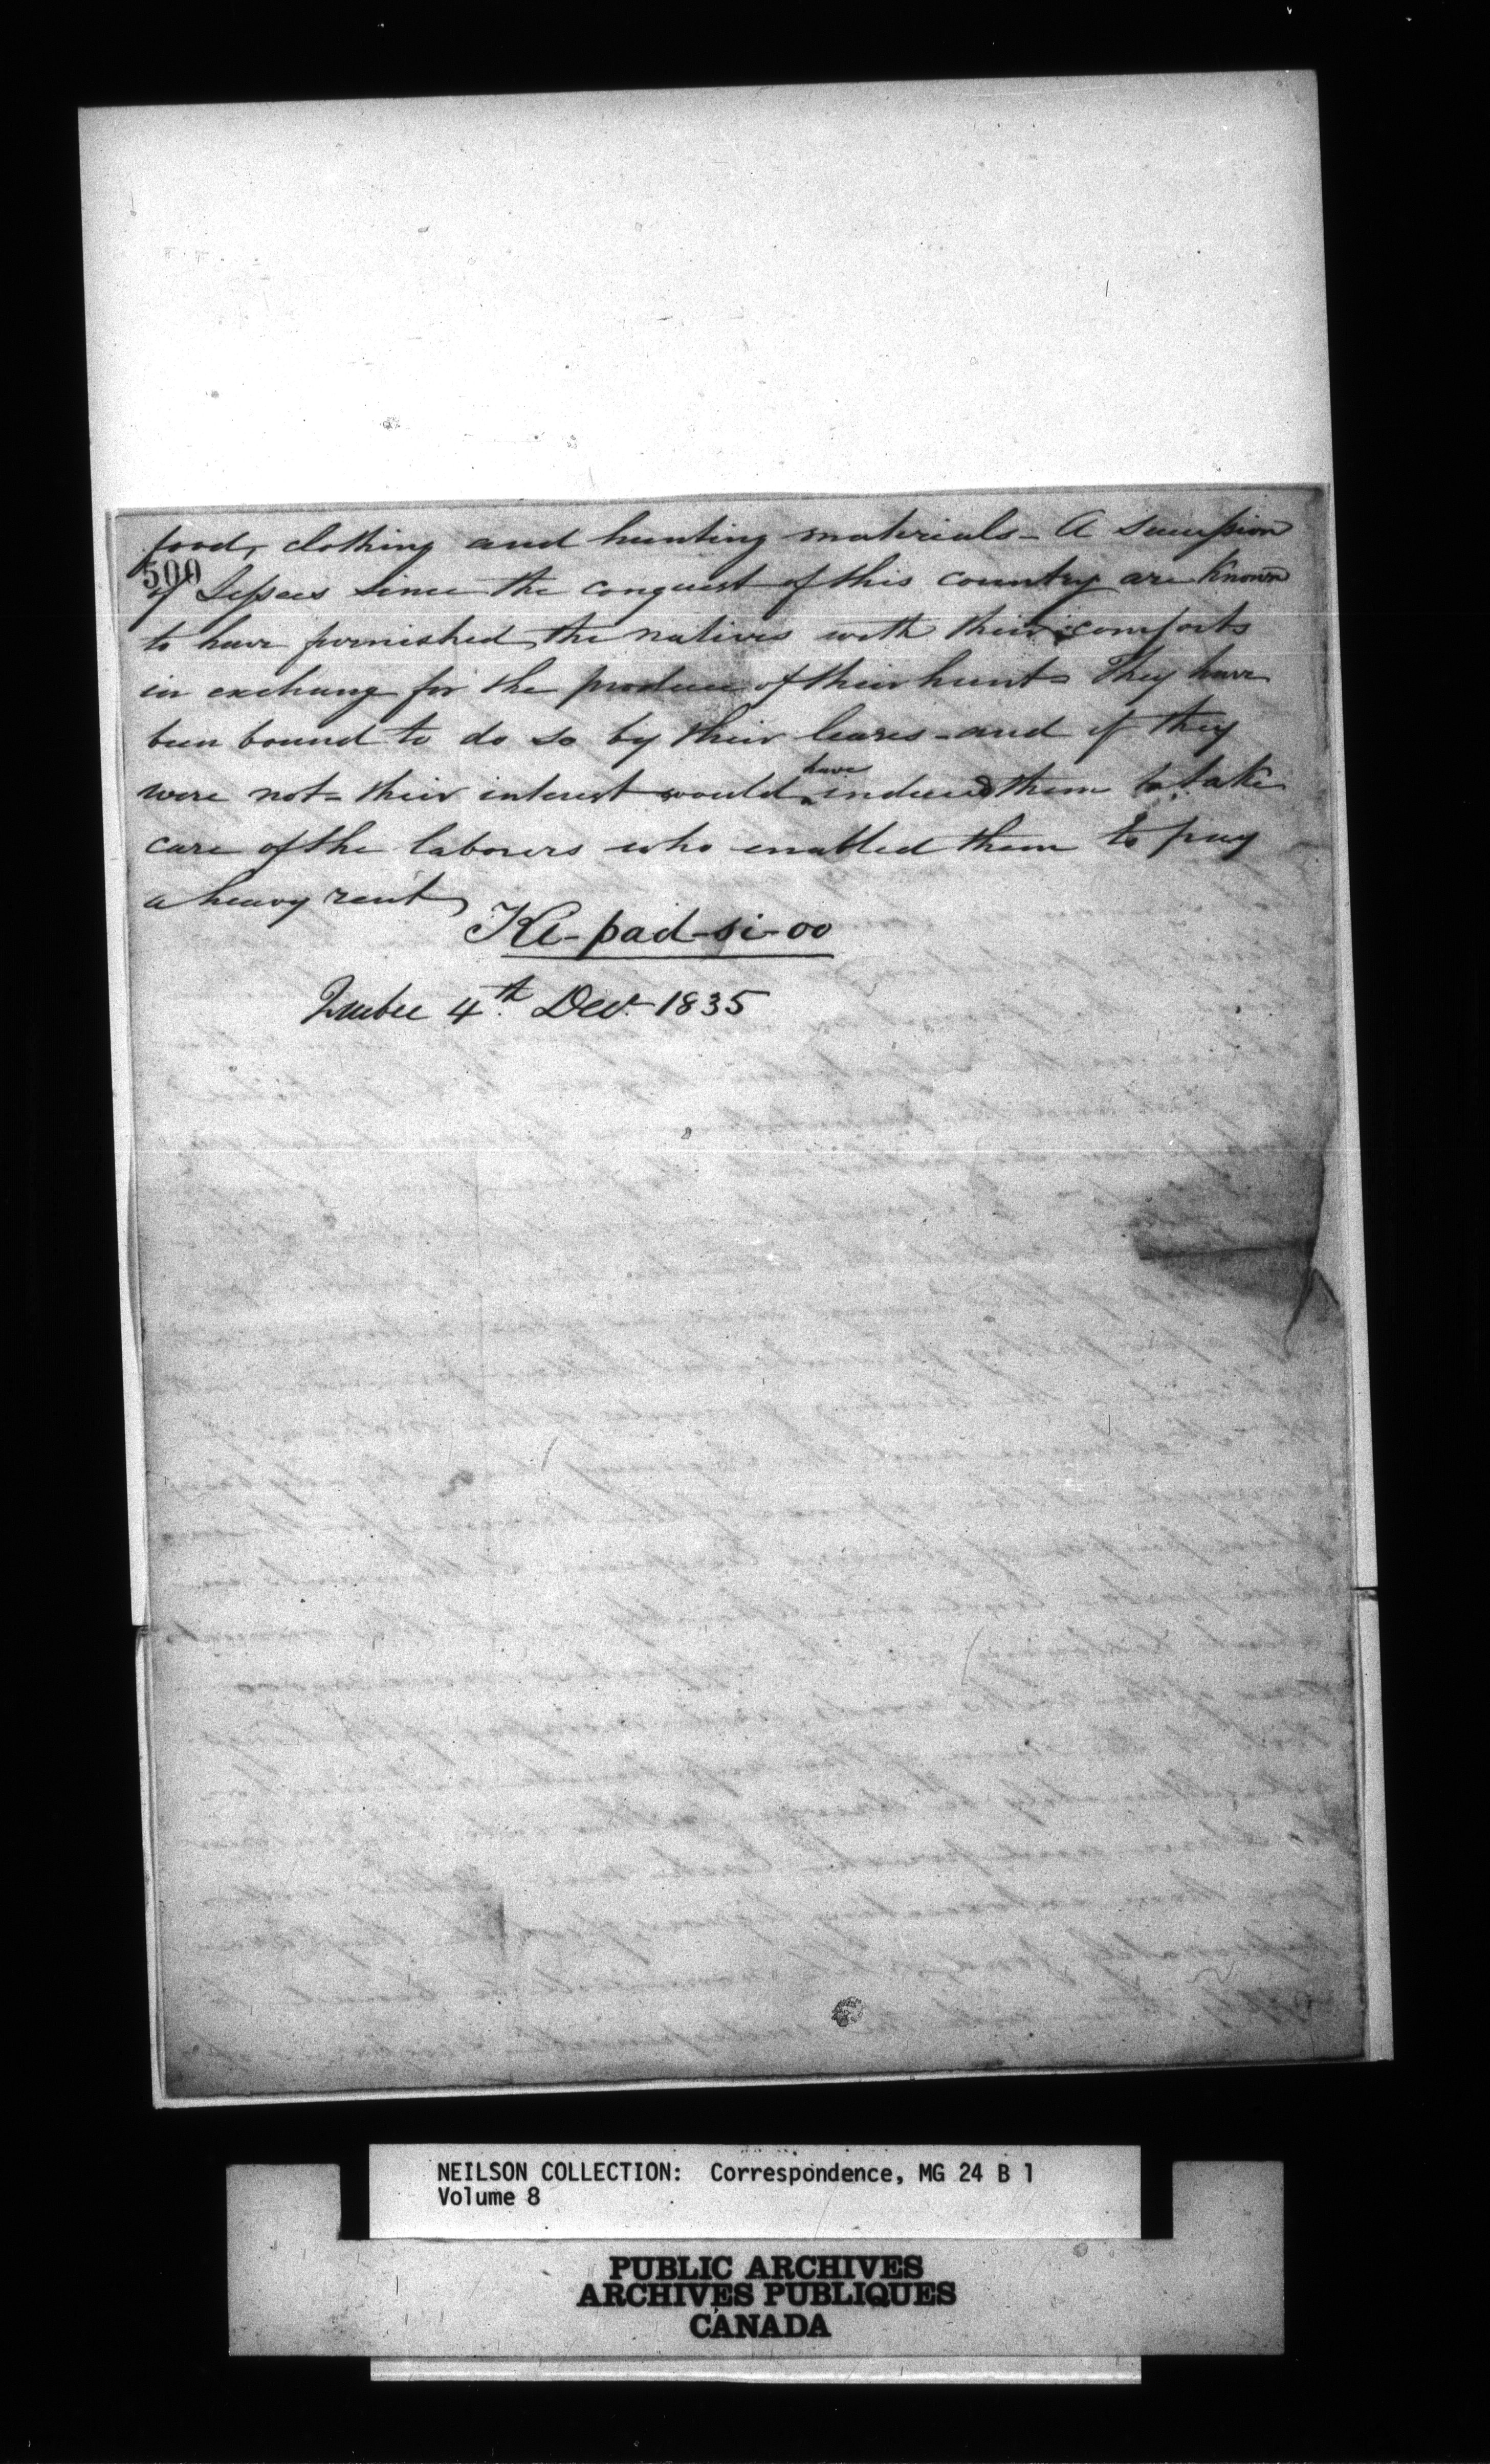 food, clothing and hunting materials - A succession
500
of Lessees since the conquest of this country are known
to have furnished the natives with their comforts
in exchange for the produce of their hunt - They have
been bound to do so by their leases - and if they
were not - their interest would have induced them to take
care of the laborers who enabled them to pay
a heavy rent
Ke-pad-si-oo
Quebec 4th Decr 1835
NEILSON COLLECTION: Correspondence, MG 24 B 1
Volume 8
PUBLIC ARCHIVES
ARCHIVES PUBLIQUES
CANADA